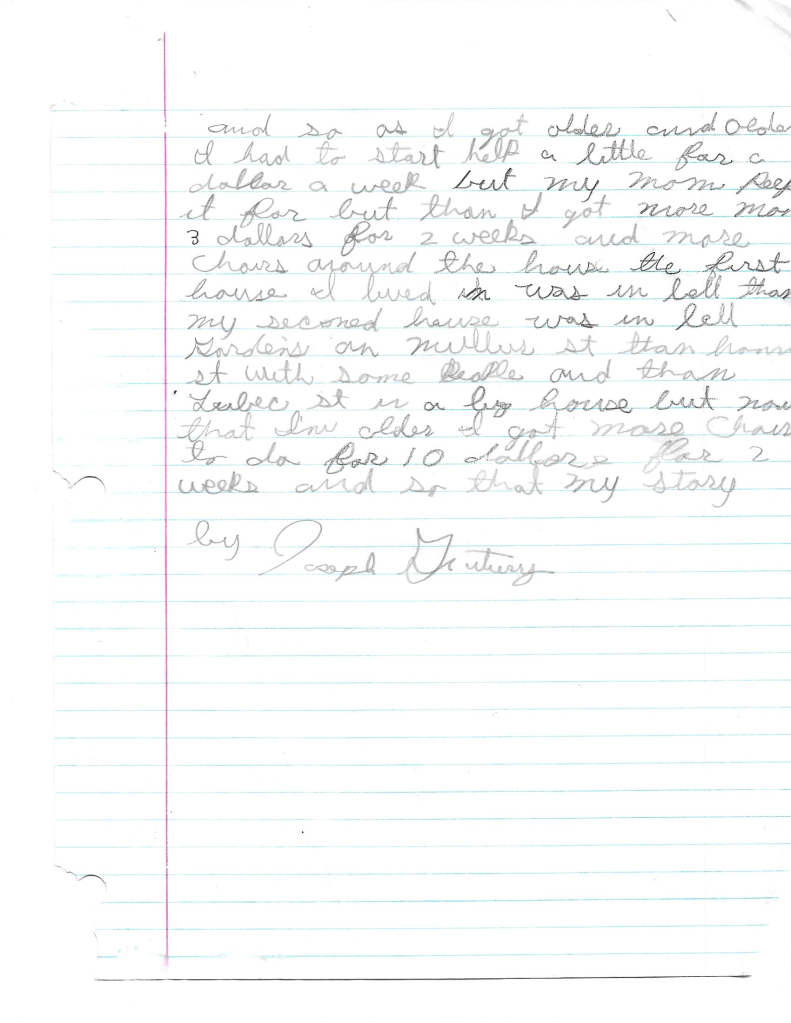 and so as I got older and olde
I had to start help a little for a
dollar a week but my mom keep
it for but than I got more mo
3 dollars for 2 weeks and more
chors around the hous the first
house I lived in was in bell than
my seconed house was in bell
Gardens on mullus st than
st with some and than
Lubec st in a big house but now
that I'm older I got more chors
to do for 10 dollors for 2
weeks and so that my story
by Joseph